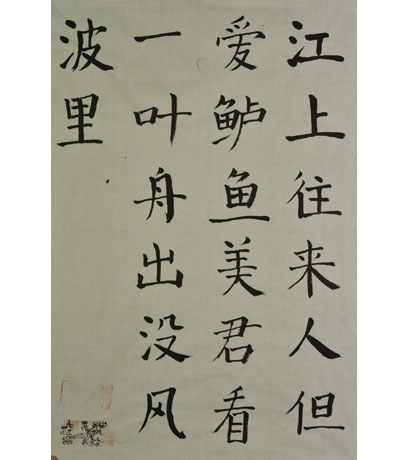 江上往来人但
爱鲈鱼美君看
一叶舟出没风
波里